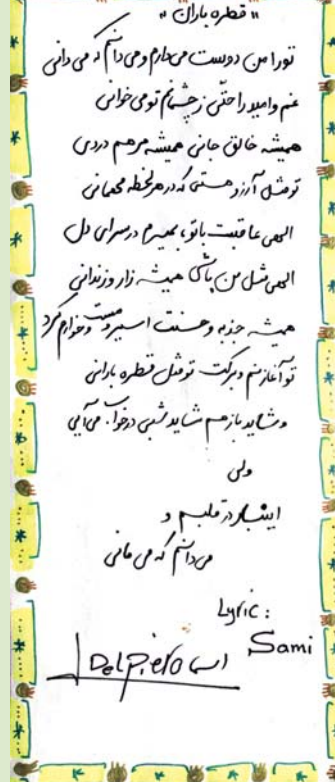 " قطره باران "
تورا من دوست می دارم و می دانم که می دانی
غم و امید را حتّی ز چشمانم تو می خوانی
همیشه خالق جانی همیشه مرهم دردی
تو مثل آرزو هستی که در هر لحظه مهمانی
الهی عاقبت با تو، بمیرم در سرای دل
الهی مثل من باشی همیشه زار و زندانی
همیشه جذبه و حسنت اسیر و مست و خوارم کرد
تو آغاز منم و برکت تو مثل قطره بارانی
و شاید باز هم شاید شبی در خواب می آیی
ولی
اینبار در قلبم و
می دانم که می مانی
Lyric :
Sami
DelPiero